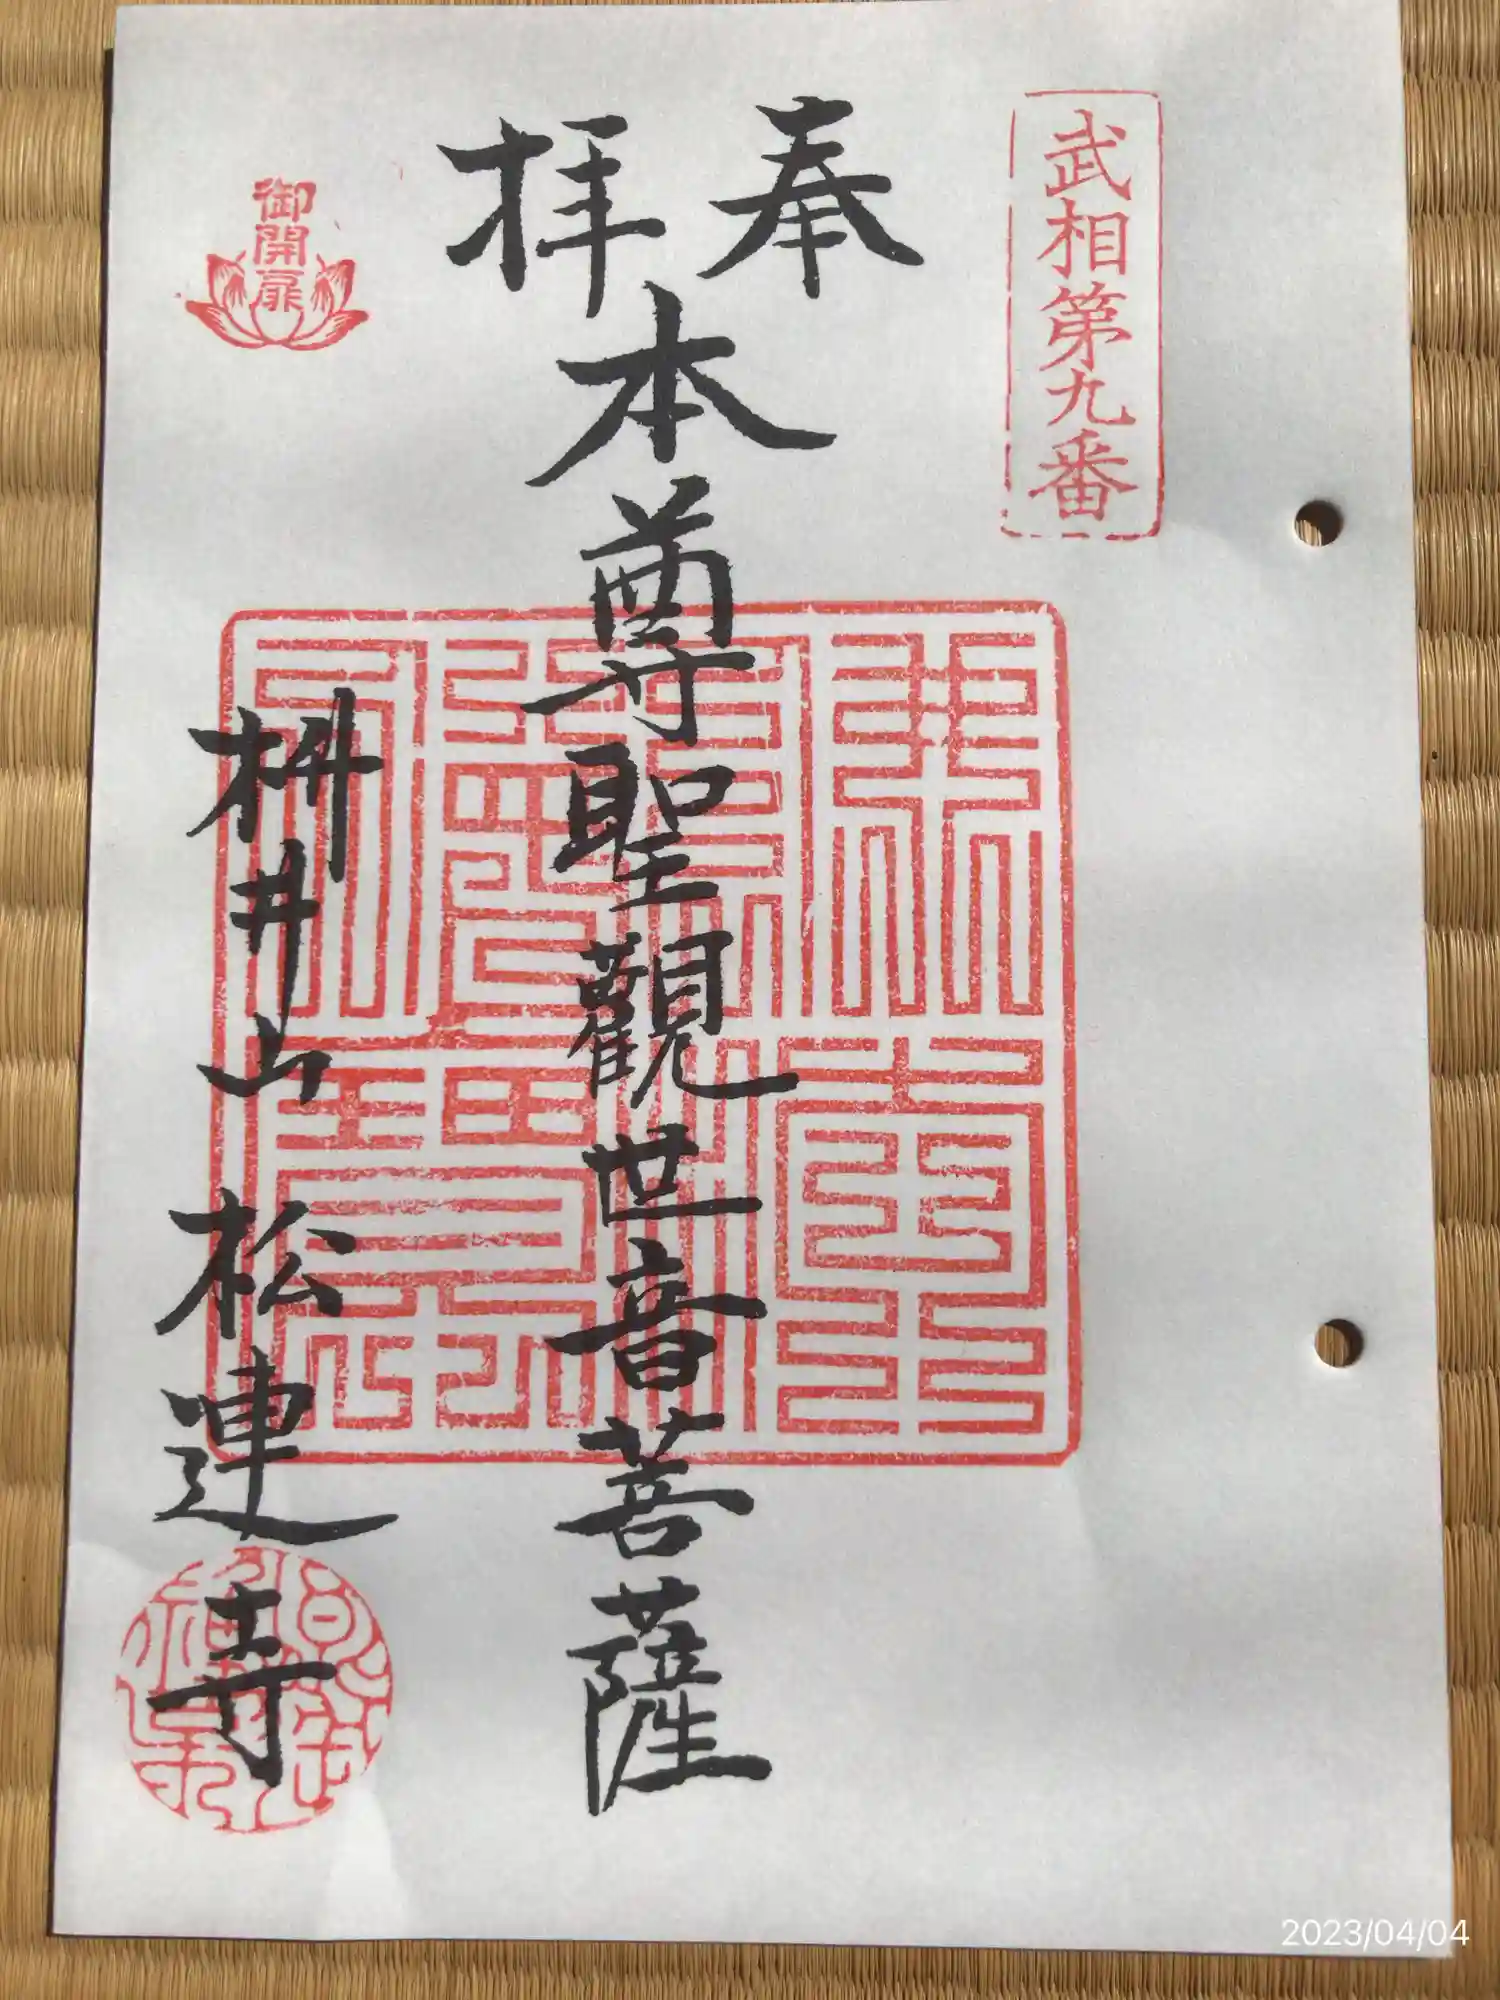 武相第九番
奉拝
本尊聖觀世音菩薩
御開扉
枡井山 松連寺
2023/04/04